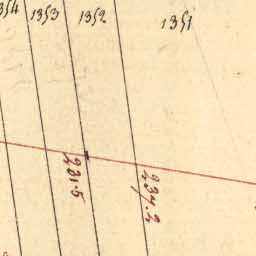 1354
1353
1352
1351
231.5
234.2